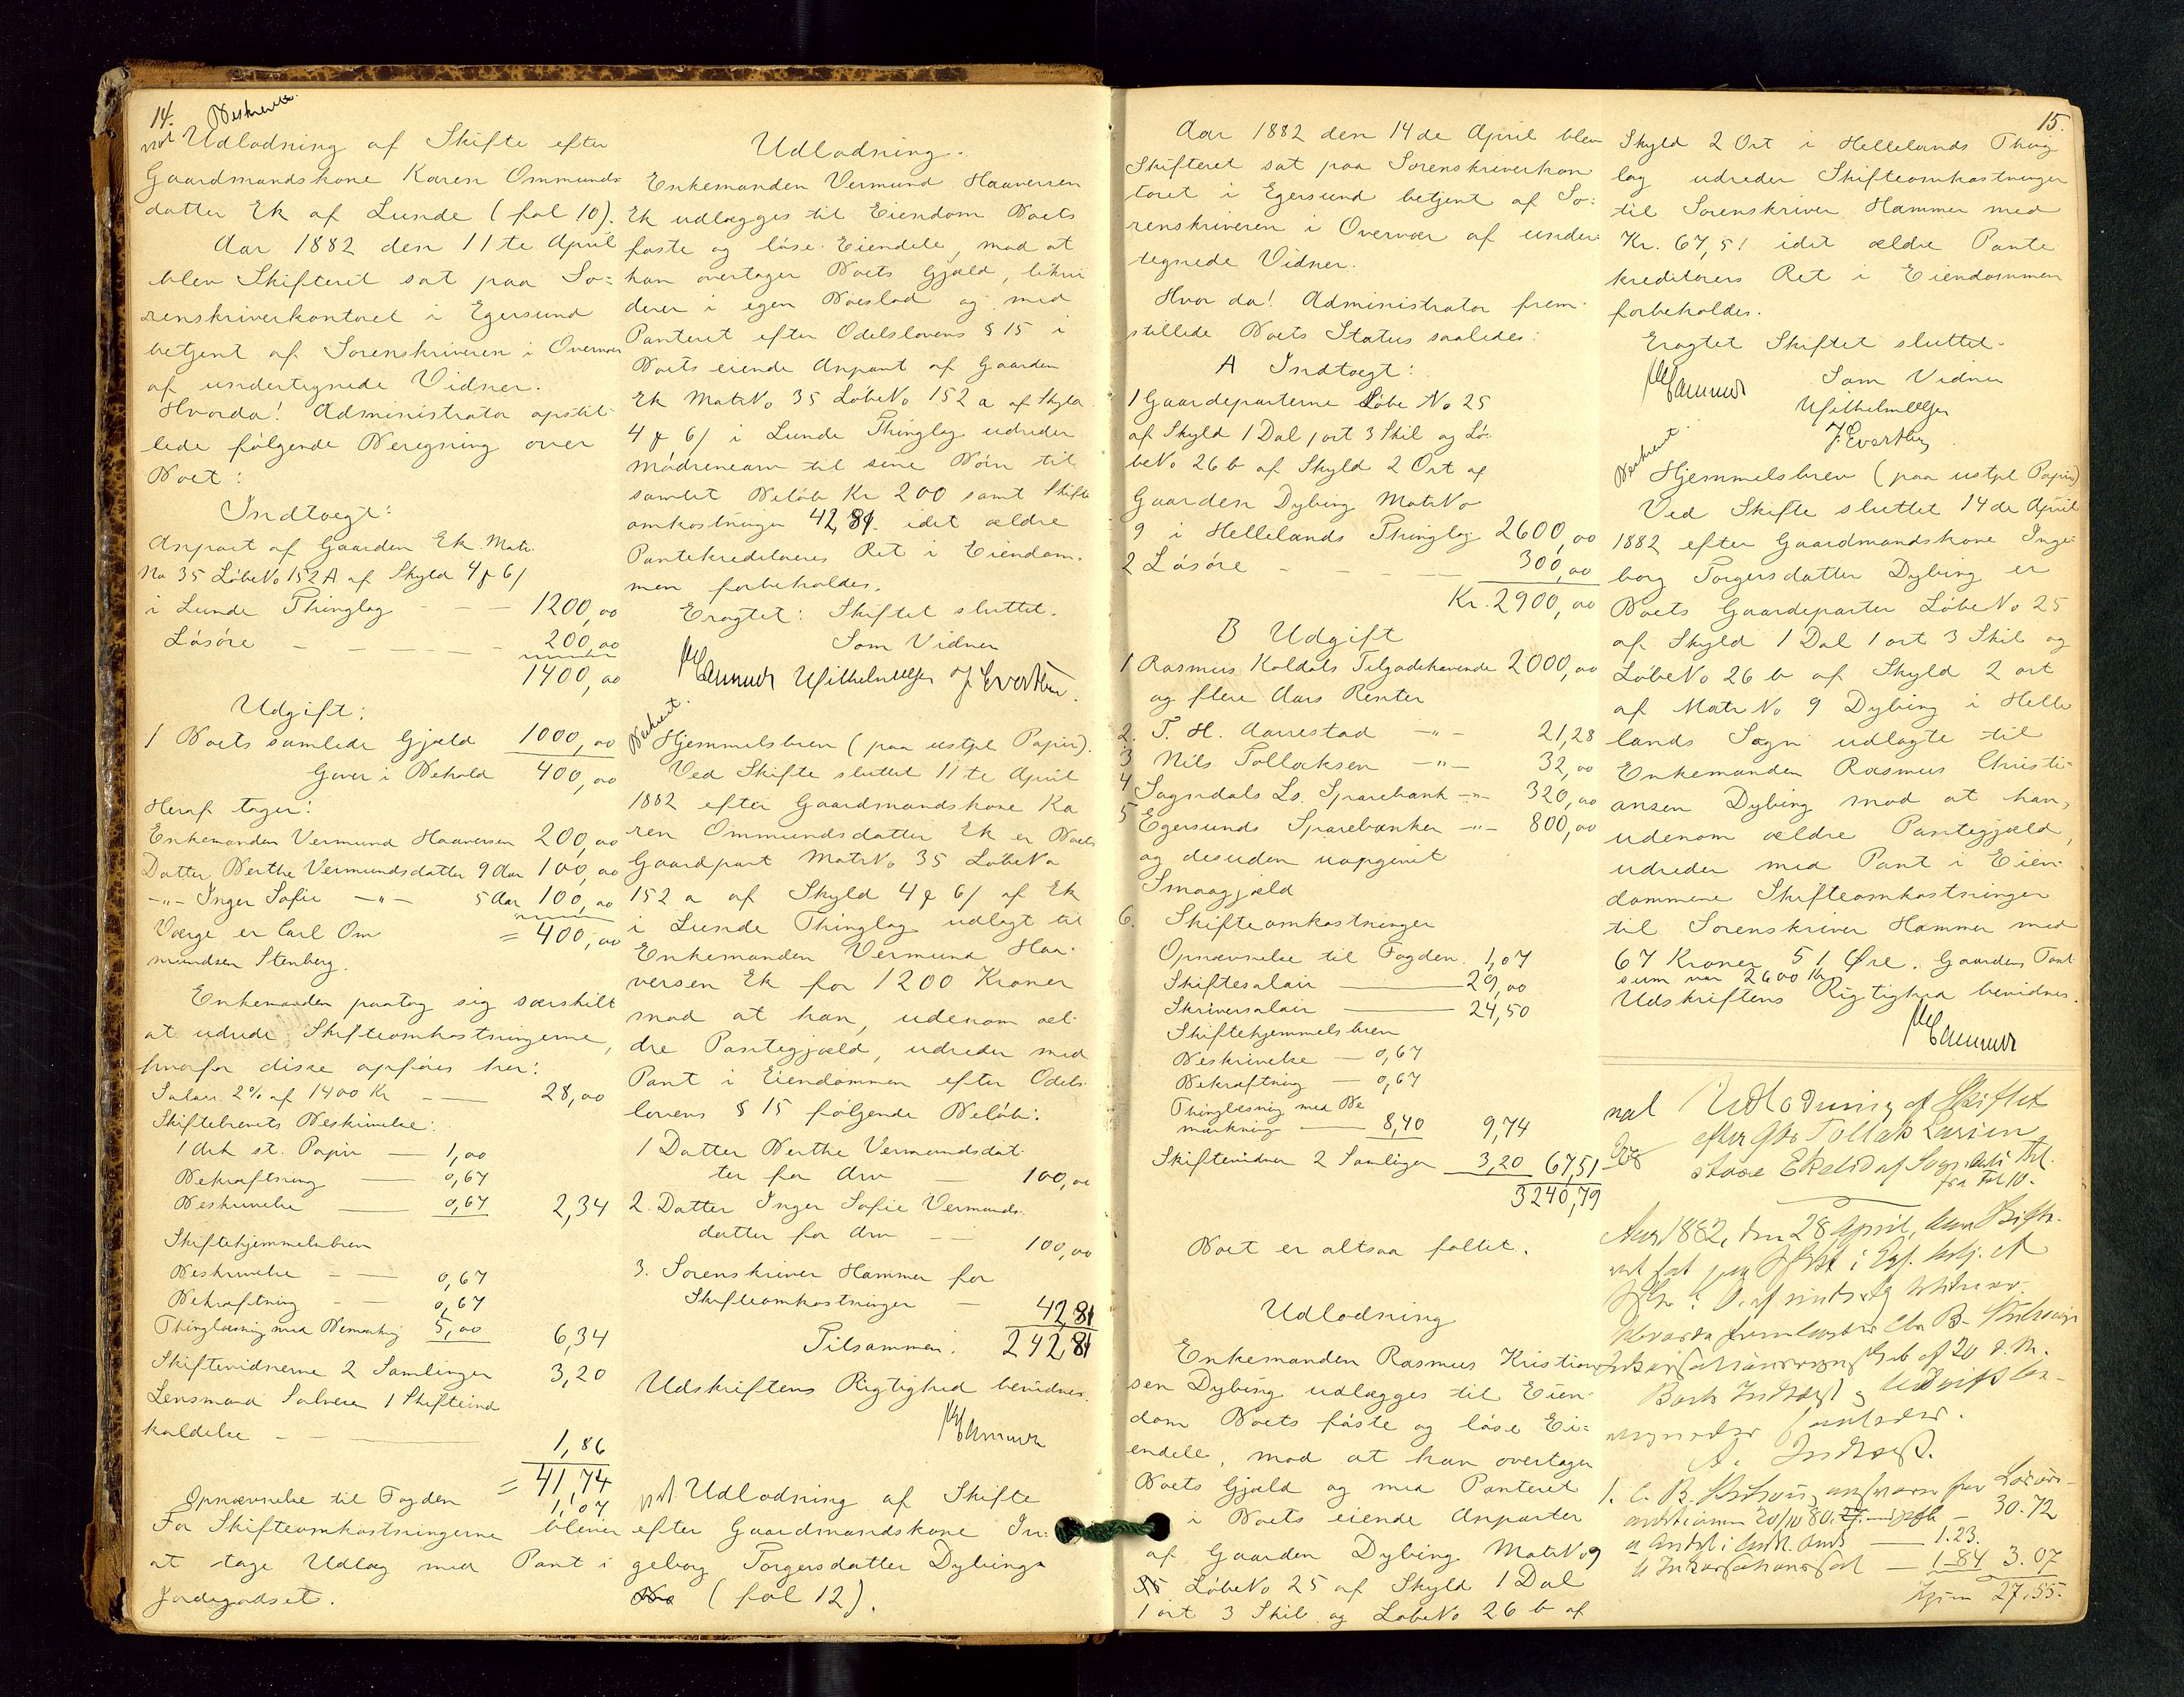 14.
Beskrevet
not Udlodning af Skifte efter
Gaardmandskone Karen Ommunds
datter Ek af Lunde (fol 10).
Aar 1882 den 11te April
blev Skifteret sat paa So=
renskriverkontoret i Egersund
betjent af Sorenskriveren i Overvær
af undertegnede Vidner.
Hvorda! Administrator opstil
lede følgende Beregning over
Boet:
Indtægt:
Anpart af Gaarden Ek. Matr.
No 35 LøbeNo 152 A af Skyld 4 ƒ 6/
i Lunde Thinglag - - - 1200,00
Løsøre - - - - - 200,00
1400,00
Udgift:
1 Boets samlede Gjæld 1000,00
Giver i Behold 400,00
Heraf tager:
Enkemanden Vermund Haaversen 200,00
Datter Berthe Vermundsdatter 9 Aar 100,00
-"- Inger Sofie -"- 5 Aar 100,00
Værge er Carl Om = 400,00
mundsen Stenberg.
Enkemanden paatog sig særskilt
at udrede Skifteomkostningerne,
hvorfor disse opføres her:
Salair 2% af 1400 Kr - — 28,00
Skiftebrevets Beskrivelse:
1 Ark st. Papir — 1,00
Bekræftning — 0,67
Beskrivelse — 0,67 2,34
Skiftehjemmelsbrev
Beskrivelse - — 0,67
Bekræftning - - 0,67
Thinglæsning med Bemærkng 5,00 6,34
Skiftevidnerne 2 Samlinger 3,20
Lensmand Salvesen 1 Skifteind
kaldelse - - — 1,86
= 41,74
Opnævnelse til Fogden 1,07
For Skifteomkostningerne bliver
at tage Udlæg med Pant i
Jordegodset.
Udlodning.
Enkemanden Vermund Haaversen
Ek udlægges til Eiendom Boets
faste og løse Eiendele, mod at
han overtager Boets Gjæld, likvi
derer i egen Boeslod og med
Panteret efter Odelslovens § 15 i
Boets eiende Anpart af Gaarden
Ek MatrNo 35 LøbeNo 152 a af Skyld
4 ƒ 6/ i Lunde Thinglag udreder
mødrenearv til sine Børn til
samlet Beløb Kr 200 samt Skifte
omkostninger 42,81. idet ældre
Pantekreditorers Ret i Eiendom.
men forbeholdes.
Eragtet: Skiftet sluttet.
Som Vidner
Hammer Wilhelm Olsen J. Evertsen.
Beskrevet.
Hjemmelsbrev (paa ustpl Papir).
Ved Skifte sluttet 11te April
1882 efter Gaardmandskone Ka
ren Ommundsdatter Ek er Boets
Gaardpart MatrNo 35 LøbeNo
152 a af Skyld 4 ƒ 6/ af Ek
i Lunde Thinglag udlagt til
Enkemanden Vermund Haa-
versen Ek for 1200 Kroner
mod at han, udenom æl-
dre Pantegjæld, udreder med
Pant i Eiendommen efter Odels-
lovens § 15 følgende Beløb:
1 Datter Berthe Vermundsdat-
ter for Arv — 100,00
2. Datter Inger Sofie Vermunds-
datter for Arv - 100,00
3. Sorenskriver Hammer for
Skifteomkostninger - 42,81
Tilsammen: 242,81
Udskriftens Rigtighed bevidnes.
Hammer
not Udlodning af Skifte
efter Gaardmandskone In-
geborg Torgersdatter Dybings
(fol 12).
15.
Aar 1882 den 14de April blev
Skifteret sat paa Sorenskriverkon
toret i Egersund betjent af So=
renskriveren i Overvær af under-
tegnede Vidner.
Hvor da! Administrator frem-
stillede Boets Status saaledes:
A Indtægt:
1 Gaardeparterne Løbe No 25
af Skyld 1 Dal 1 ort 3 Skil og Lø-
beNo 26 b af Skyld 2 Ort af
Gaarden Dybing MatrNo
9 i Hellelands Thinglag 2600,00
2 Løsøre - - - — 300,00
Kr. 2900,00
B Udgift
1 Rasmus Koldals Tilgodehavende 2000,00
og flere Aars Renter
2. T. H. Aarrestad -"- 21,28
3 Nils Tollaksen -"- 32,00
4 Sogndals Ls. Sparebank -"- 320,00
5 Egersunds Sparebanken -"- 800,00
og desuden uopgivet
Smaagjæld
6. Skifteomkostninger
Opnævnelse til Fogden 1,07
Skiftesalair — 29,00
Skriversalair — 24,50
Skiftehjemmelsbrev
Beskrivelse — 0,67
Bekræftning — 0,67
Thinglæsning med Be
mærkning — 8,40 9,74
Skiftevidner 2 Samlinger 3,20 67,51
3240,79
Boet er altsaa fallit.
Udlodning
Enkemanden Rasmus Kristian
sen Dybing udlægges til Eien-
dom Boets faste og løse Ei=
endele, mod at han overtager
Boets Gjæld og med Panteret
i Boets eiende Anparter
af Gaarden Dybing MatrNo 9
LøbeNo 25 af Skyld 1 Dal
1 ort 3 Skil og LøbeNo 26 b af
Skyld 2 Ort i Hellelands Thing
lag udreder Skifteomkostninger
til Sorenskriver Hammer med
Kr. 67,51 idet ældre Pante
kreditorers Ret i Eiendommen
forbeholdes.
Eragtet Skiftet sluttet.
Hammer Som Vidner
Wilhelm Olsen
J. Evertsen
Beskrevet.
Hjemmelsbrev (paa ustpl Papir)
Ved Skifte sluttet 14de April
1882 efter Gaardmandskone Inge-
borg Torgersdatter Dybing er
Boets Gaardeparter LøbeNo 25
af Skyld 1 Dal 1 ort 3 Skil og
LøbeNo 26 b af Skyld 2 ort
af Matr No 9 Dybing i Helle
lands Sogn udlagte til
Enkemanden Rasmus Christi-
ansen Dybing mod at han,
udenom ældre Pantegjæld,
udreder med Pant i Eien-
dommene Skifteomkostninger
til Sorenskriver Hammer med
67 Kroner 51 Øre. Gaardens Taxt
sum var 2600 Kr
Udskriftens Rigtighed bevidnes.
Hammer
not Udlodning af Skiftet
efter Tollak Larsen
store Ekelid af Sogndals
fra Fol 10.
Aar 1882, den 28 April, blev Skifte-
ret sat paa
Hvorda
af 20 d. M.
Boets Indtægt og Udgift
saaledes.
A. Indtægt.
1. C. B. for
20/10 80. — 30.72
a — 1.23.
b — 1.84 3.07
27.55.